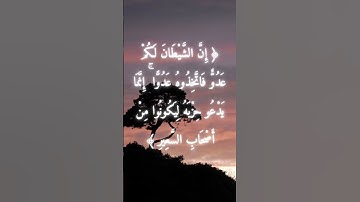 ﴿ إِنَّ الشَّيْطَانَ لَكُمْ
عَدُوٌّ فَاتَّخِذُوهُ عَدُوًّا ۚ إِنَّمَا
يَدْعُو حِزْبَهُ لِيَكُونُوا مِنْ
أَصْحَابِ السَّعِيرِ ﴾